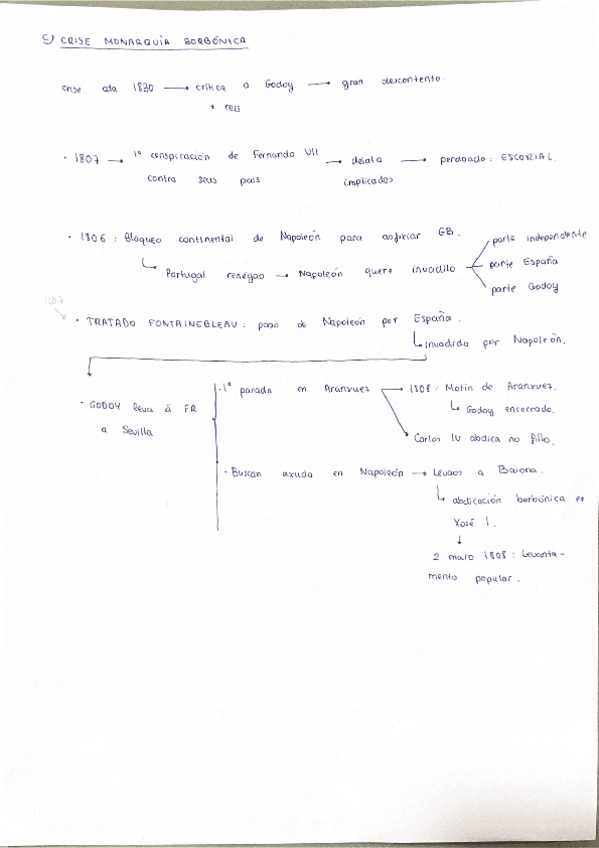 c) CRISE MONARQUÍA BORBÓNICA
crise ata 1830 → crítica a Godoy → gran descontento.
+ reis
· 1807 → 1ª conspiración de Fernando VII → delata → perdoado: ESCORIAL.
contra seus pais implicados
· 1806: Bloqueo continental de Napoleón para asfixiar GB.
parte independente
Portugal renégao → Napoleón quere invadilo
parte España
parte Godoy
1807
· TRATADO FONTAINEBLEAU: paso de Napoleón por España.
invadida por Napoleón.
· GODOY leva á FR
a Sevilla
· 1ª parada en Aranxuez → 1808: Motín de Aranxuez.
Godoy encerrado.
Carlos IV abdica no fillo.
· Buscan axuda en Napoleón → Lévaos a Baiona.
abdicación borbónica en
Xosé I.
↓
2 maio 1808: Levanta-
mento popular.